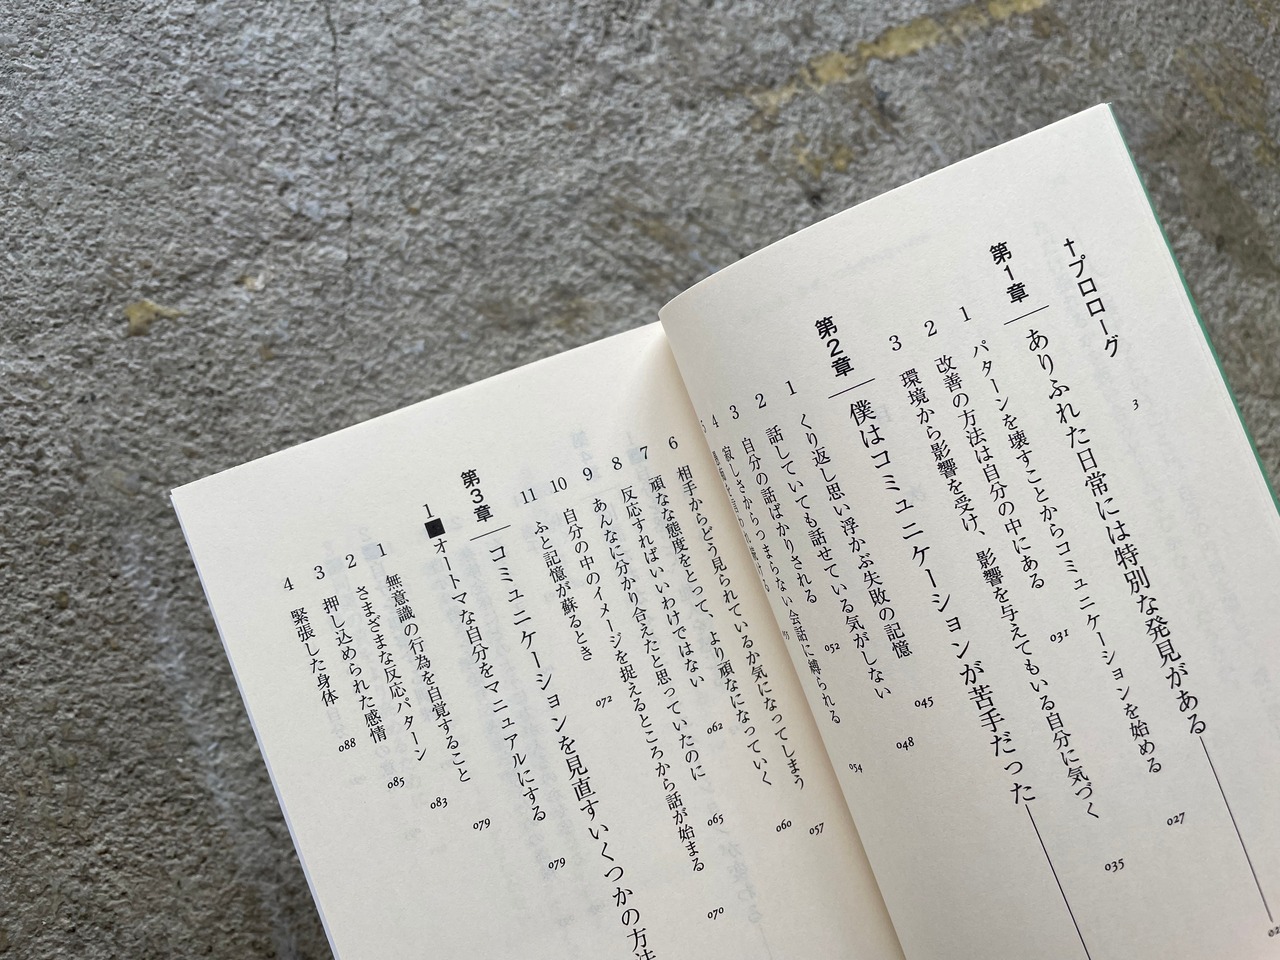 †プロローグ 3
第1章 ありふれた日常には特別な発見がある
1 パターンを壊すことからコミュニケーションを始める 027
2 改善の方法は自分の中にある 031
3 環境から影響を受け、影響を与えてもいる自分に気づく 035
第2章 僕はコミュニケーションが苦手だった
1 くり返し思い浮かぶ失敗の記憶 045
2 話していても話せている気がしない 048
3 自分の話ばかりされる 052
4 寂しさからつまらない会話に縛られる 054
6 相手からどう見られているか気になってしまう 057
7 頑なな態度をとって、より頑なになっていく 060
8 反応すればいいわけではない 062
9 あんなに分かり合えたと思っていたのに 065
10 自分の中のイメージを捉えるところから話が始まる 070
11 ふと記憶が蘇るとき 072
第3章 コミュニケーションを見直すいくつかの方法
1■オートマな自分をマニュアルにする 079
1 無意識の行為を自覚すること 079
2 さまざまな反応パターン 083
3 押し込められた感情 085
4 緊張した身体 088